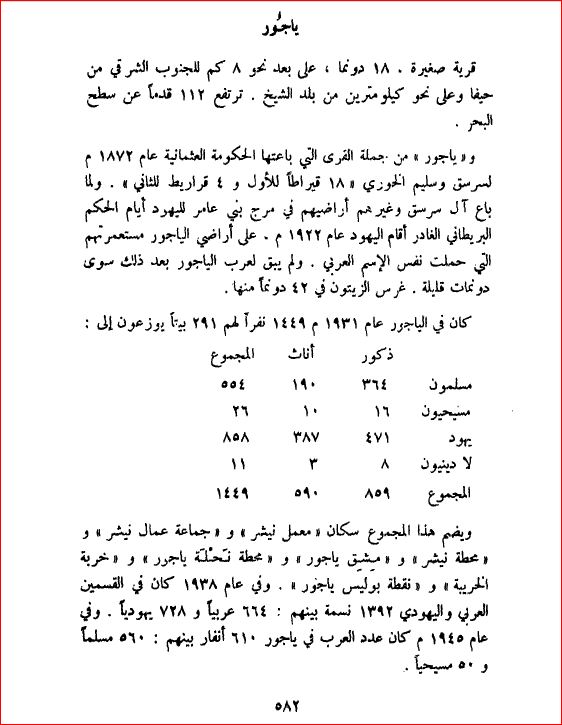 ياجُور
قرية صغيرة . ١٨ دونما ، على بعد نحو ٨ كم للجنوب الشرقي من
حيفا وعلى نحو كيلومترين من بلد الشيخ . ترتفع ١١٢ قدماً عن سطح
البحر .
و « ياجور » من جملة القرى التي باعتها الحكومة العثمانية عام ١٨٧٢ م
لسرسق وسليم الخوري « ١٨ قيراطاً للأول و ٤ قراريط للثاني » . ولما
باع آل سرسق وغيرهم أراضيهم في مرج بني عامر لليهود أيام الحكم
البريطاني الغادر أقام اليهود عام ١٩٢٢ م . على أراضي الياجور مستعمرتهم
التي حملت نفس الإسم العربي . ولم يبق لعرب الياجور بعد ذلك سوى
دونمات قليلة . غرس الزيتون في ٤٢ دونماً منها .
كان في الياجور عام ١٩٣١ م ١٤٤٩ نفراً لهم ٢٩١ بيتاً يوزعون إلى :
ذكور أناث المجموع
مسلمون ٣٦٤ ١٩٠ ٥٥٤
مسيحيون ١٦ ١٠ ٢٦
يهود ٤٧١ ٣٨٧ ٨٥٨
لا دينيون ٨ ٣ ١١
المجموع ٨٥٩ ٥٩٠ ١٤٤٩
ويضم هذا المجموع سكان « معمل نيشر » و « جماعة عمال نيشر » و
« محطة نيشر » و « ميشيق ياجور » و « محطة نَحْلَة ياجور » و « خربة
الخريبة » و « نقطة بوليس ياجور » . وفي عام ١٩٣٨ كان في القسمين
العربي واليهودي ١٣٩٢ نسمة بينهم : ٦٦٤ عربياً و ٧٢٨ يهودياً . وفي
عام ١٩٤٥ م كان عدد العرب في ياجور ٦١٠ أنفار بينهم : ٥٦٠ مسلماً
و ٥٠ مسيحياً .
٥٨٢